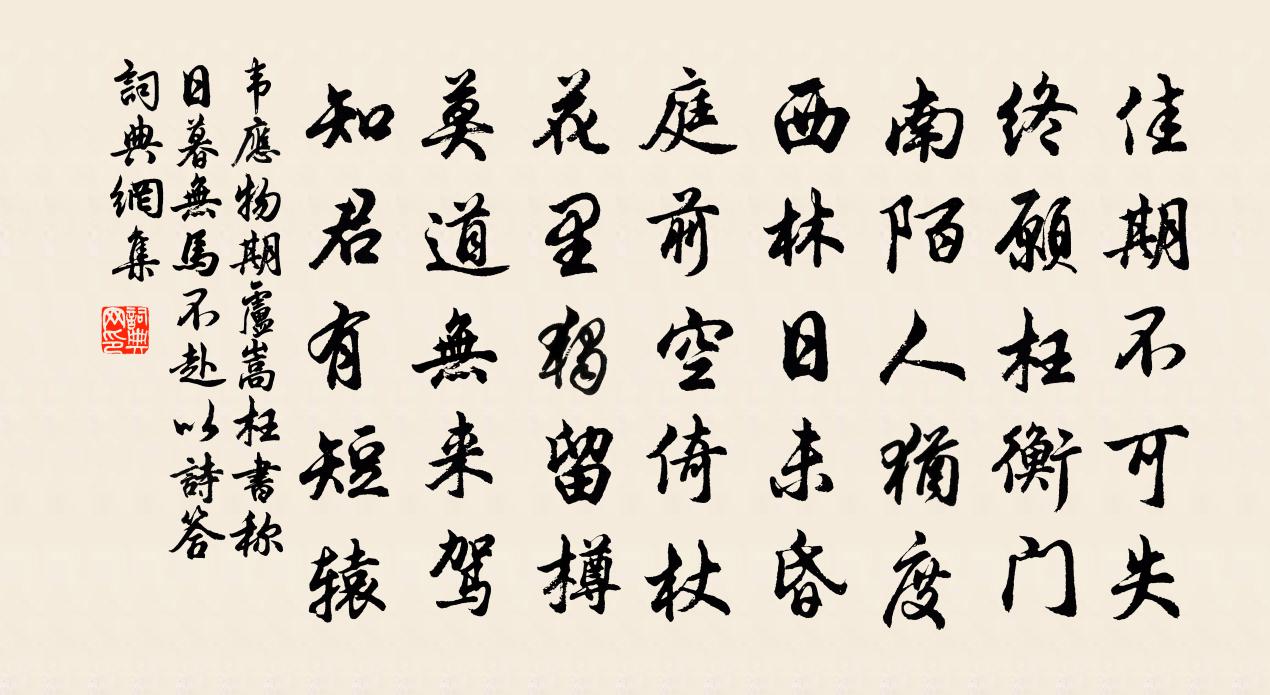 佳期不可失
终願枉衡门
南陌人猶度
西林日未昏
庭前空倚杖
花里独留樽
莫道無来駕
知君有短辕
韦應物期盧嵩枉書称
日暮無馬不赴以詩答
詞典網集
詞典网印